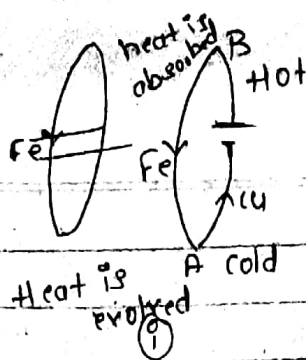 heat is
absorbed
B
Hot
Fe
Fe
Cu
A cold
Heat is
evolved
1